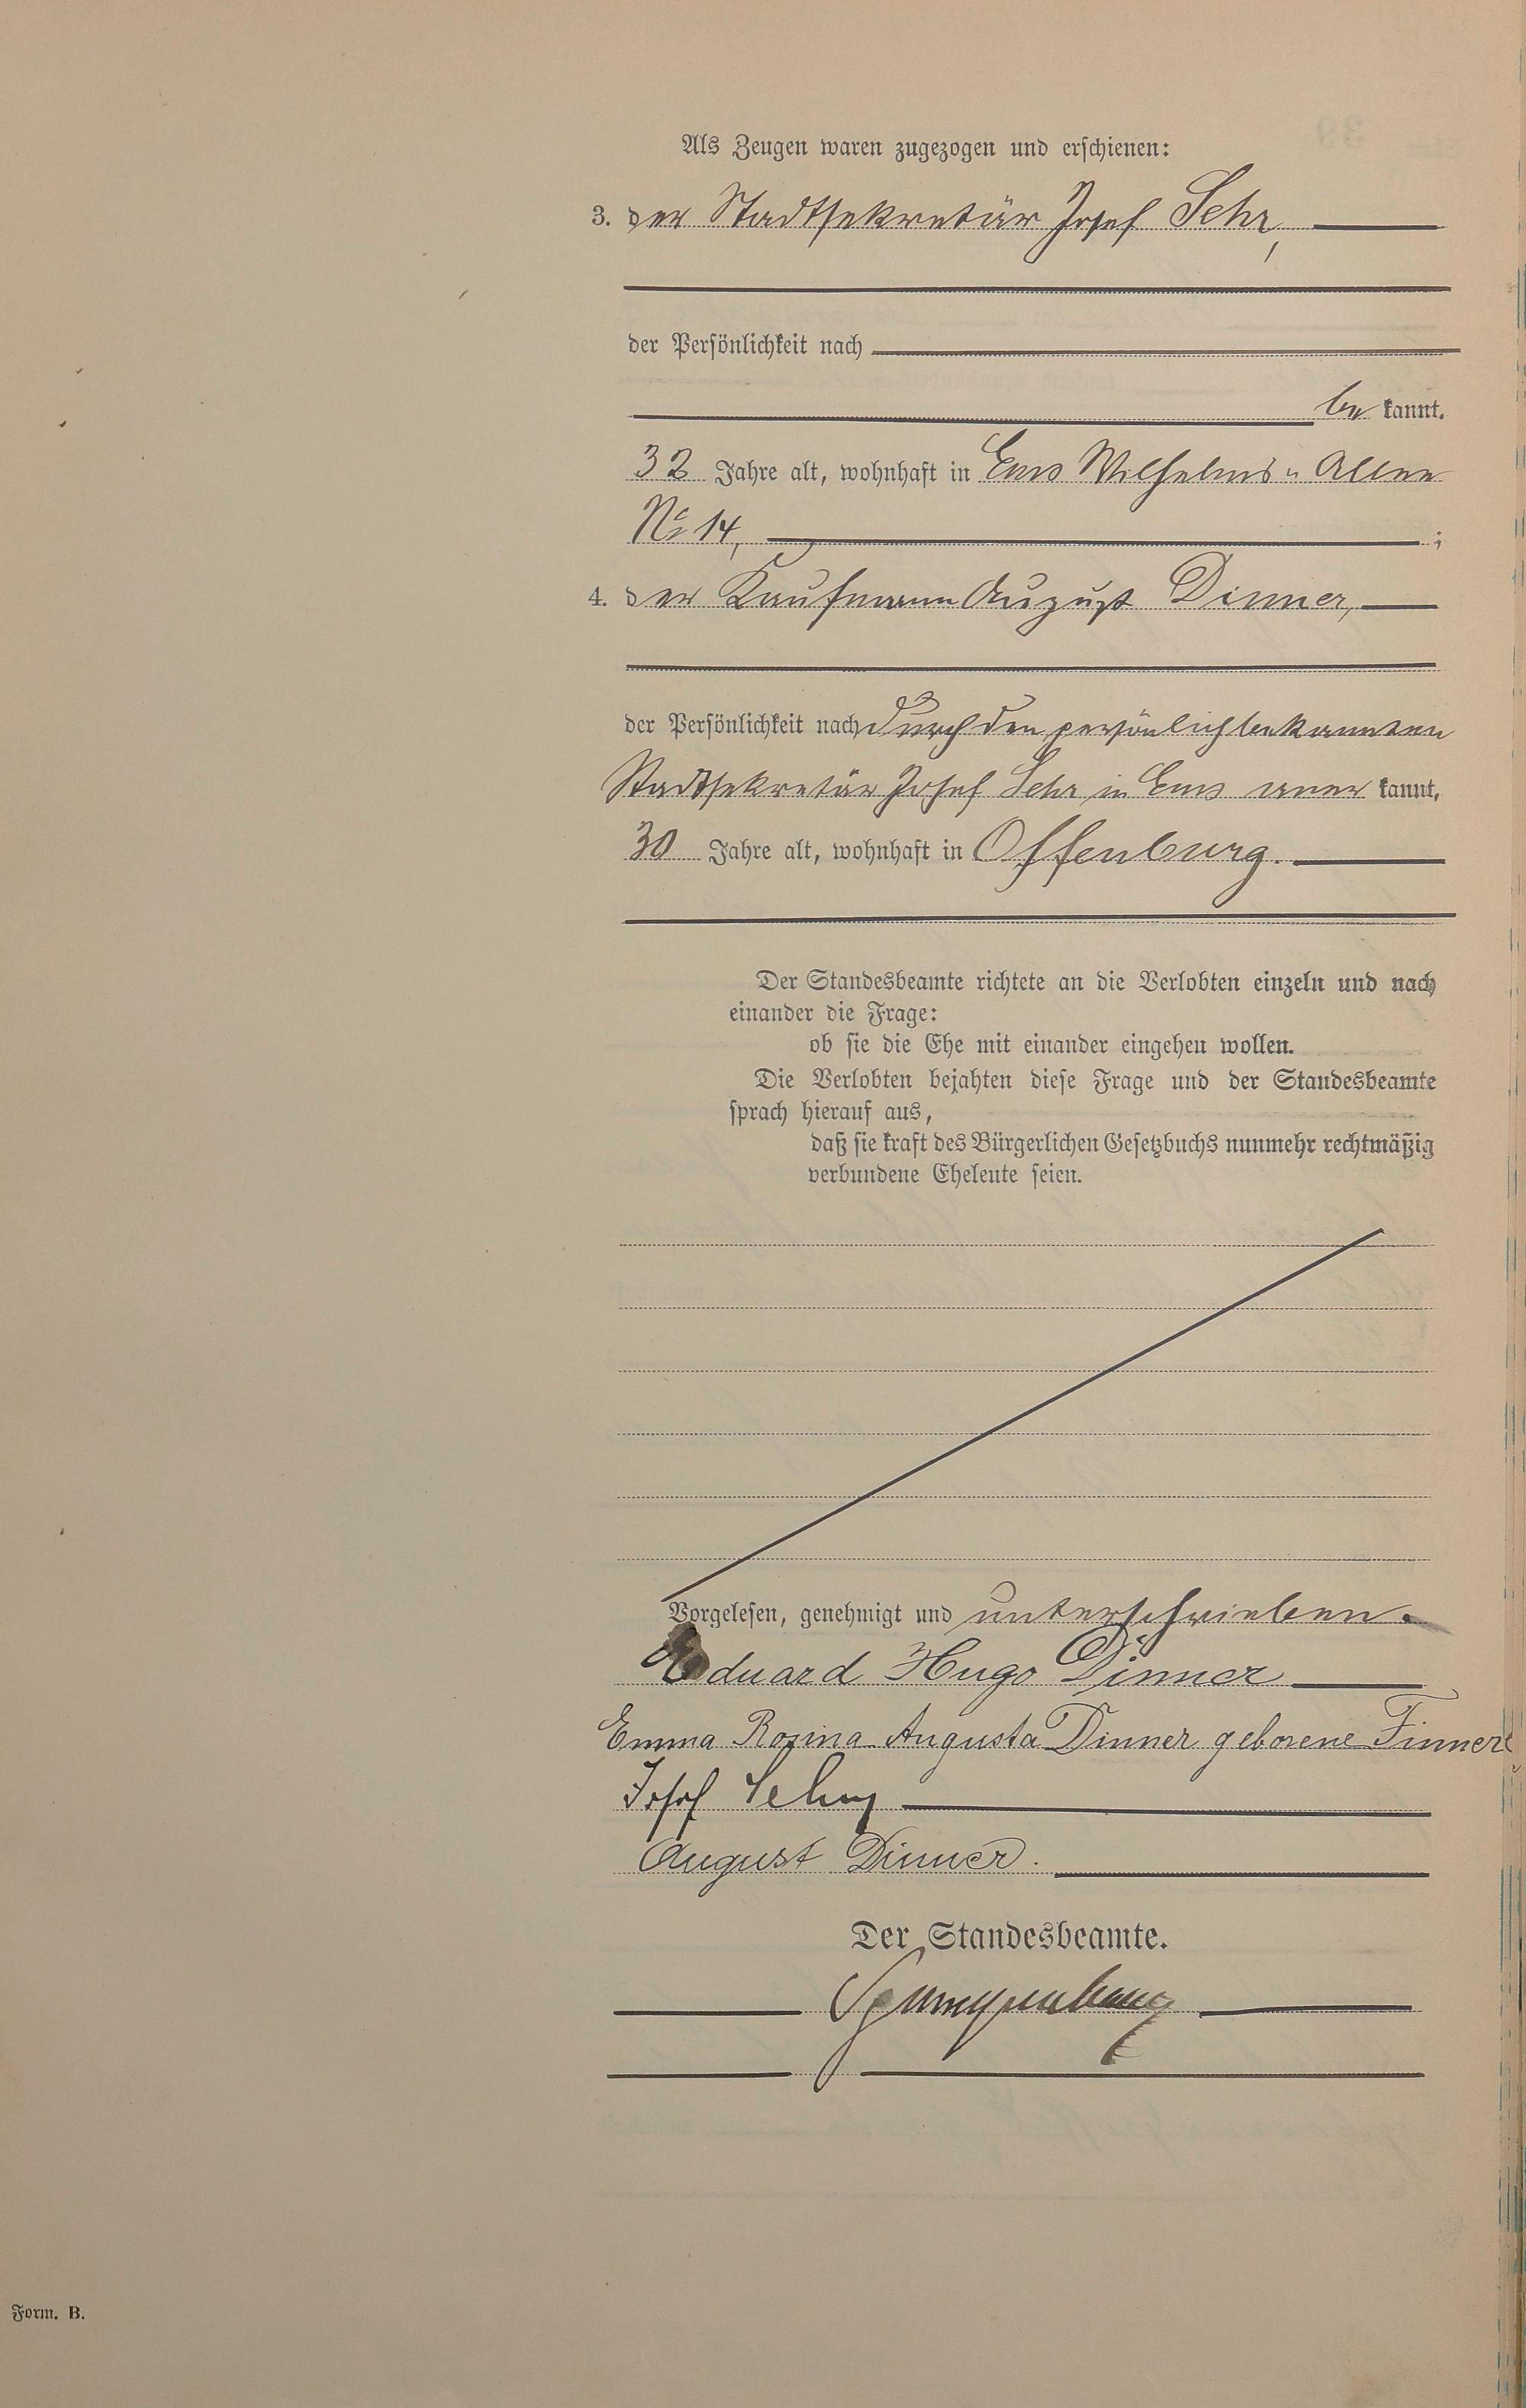 Als Zeugen waren zugezogen und erschienen:
3. der Stadtsekretär Josef Sehr,
der Persönlichkeit nach
be kannt.
32 Jahre alt, wohnhaft in Ems Wilhelms-Allee
No 14, ;
4. der Kaufmann August Dinner,
der Persönlichkeit nach durch den persönlich bekannten
Stadtsekretär Josef Sehr in Ems aner kannt,
30 Jahre alt, wohnhaft in Offenburg.
Der Standesbeamte richtete an die Verlobten einzeln und nach
einander die Frage:
ob sie die Ehe mit einander eingehen wollen.
Die Verlobten bejahten diese Frage und der Standesbeamte
sprach hierauf aus,
daß sie kraft des Bürgerlichen Gesetzbuchs nunmehr rechtmäßig
verbundene Eheleute seien.
Vorgelesen, genehmigt und unterschrieben.
Eduard Hugo Dinner
Emma Rosina Augusta Dinner geborene
Josef Sehr
August Dinner.
Der Standesbeamte.
Form. B.